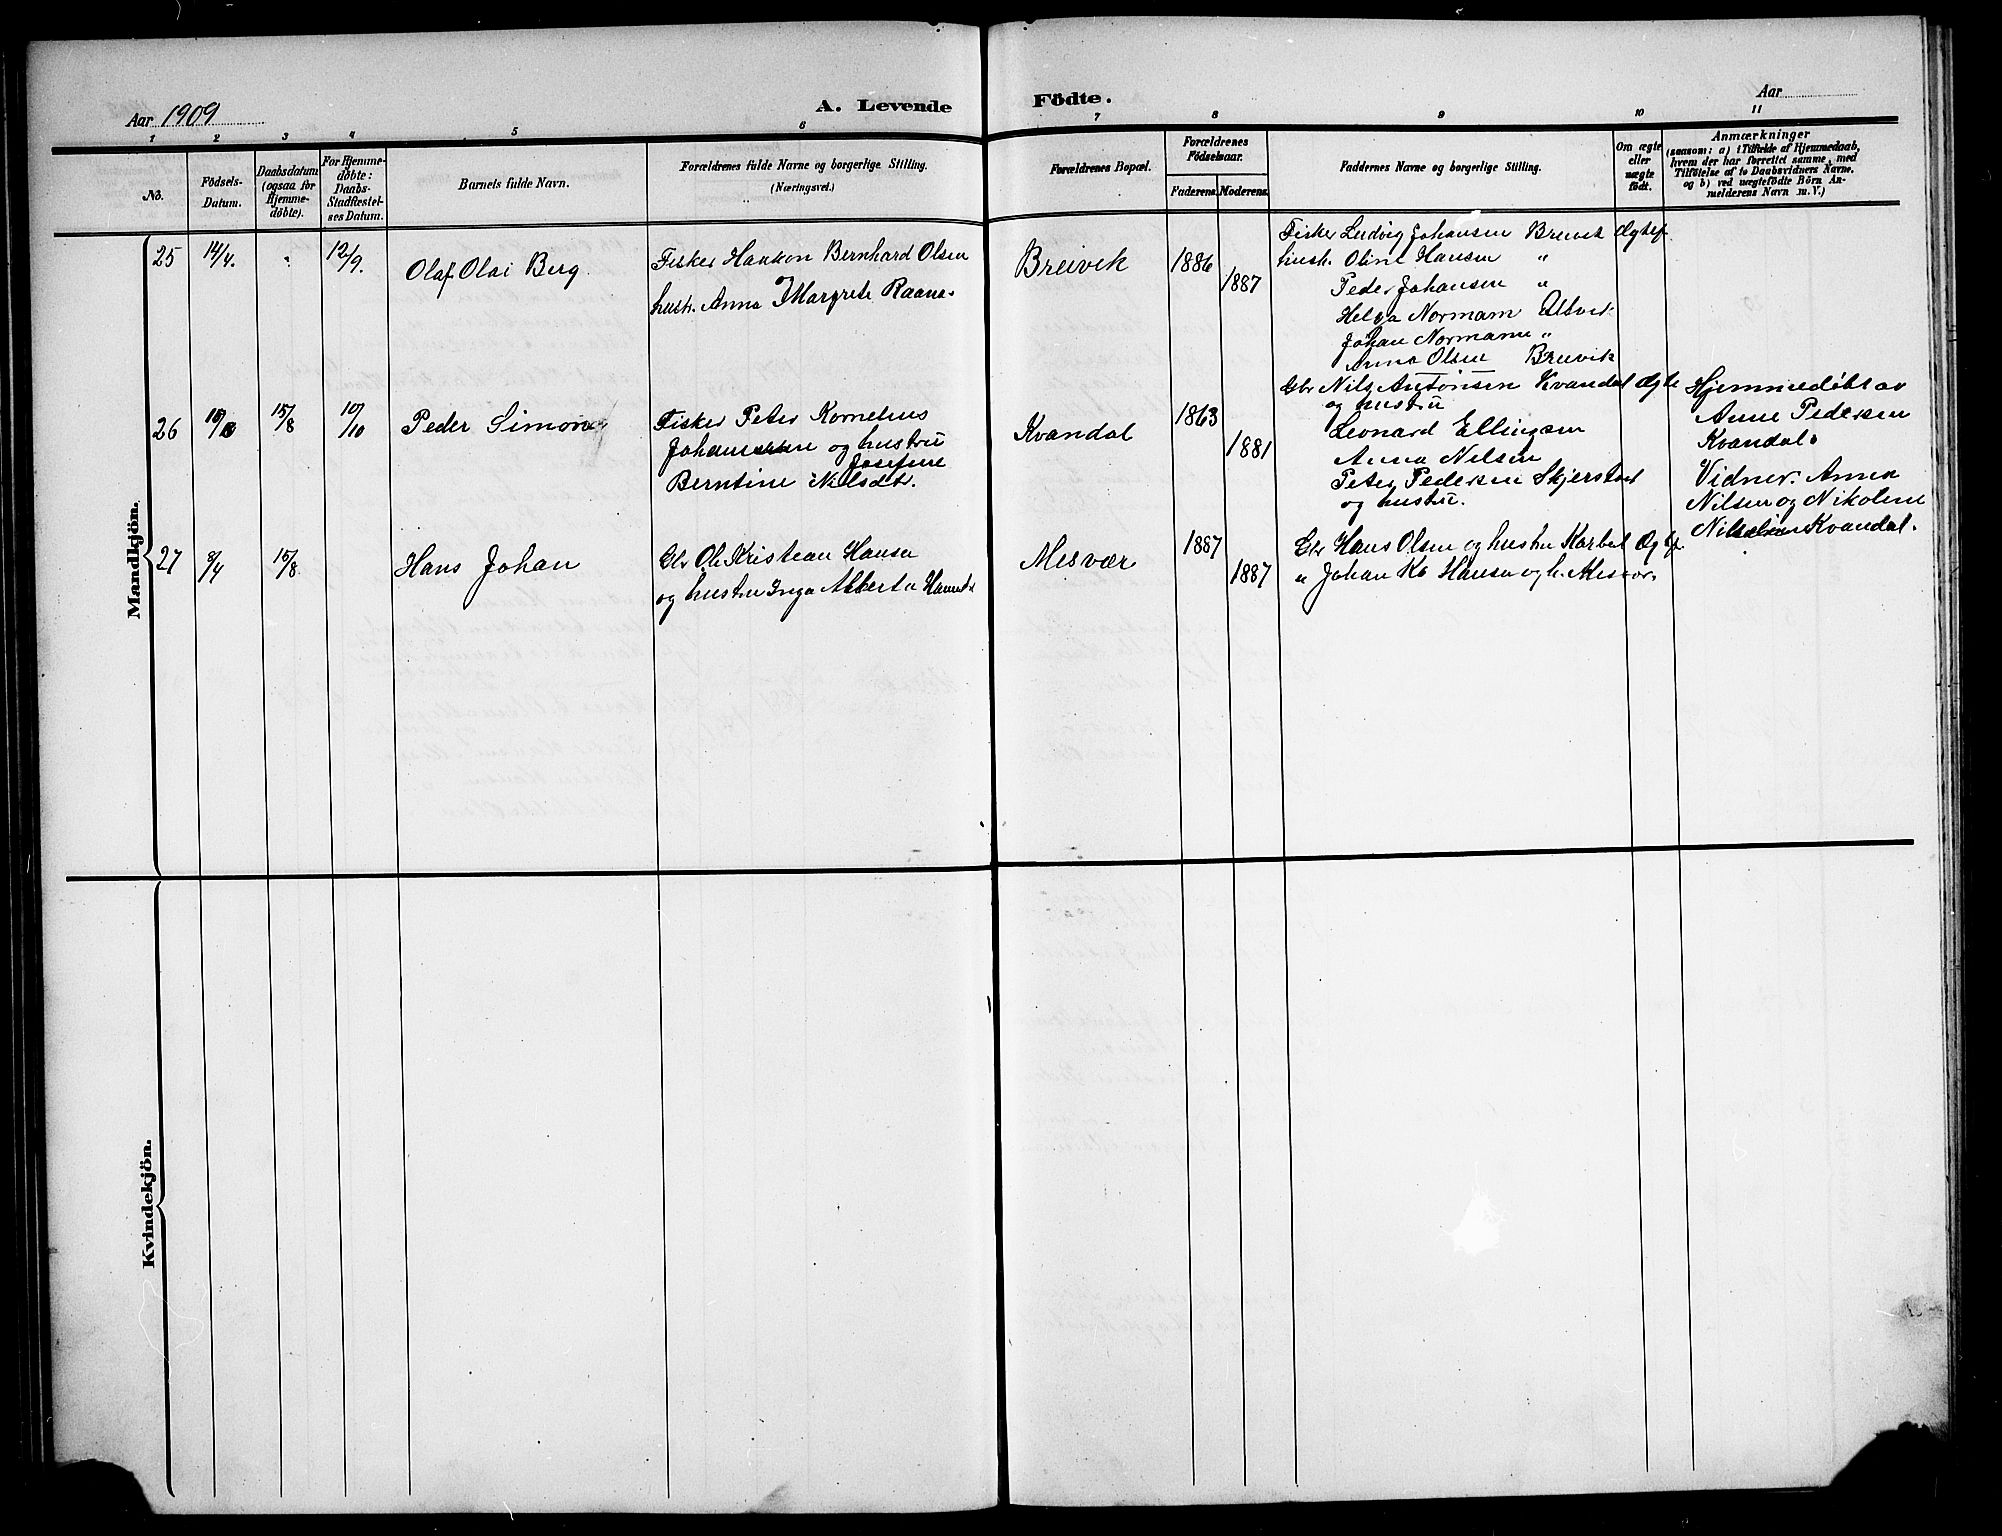 Aar 1909
A. Levende Födte.
Aar
1 2 3 4 5 6 7 8 9 10 11
No.
Födsels-
Datum.
Daabsdatum
(ogsaa för
Hjemme-
döbte).
For Hjemme-
döbte:
Daabs-
Stadfæstel-
ses Datum.
Barnets fulde Navn.
Forældrenes fulde Navne og borgerlige Stilling.
(Næringsvei.)
Forældrenes Bopæl.
Forældrenes
Födselsaar.
Faderens. Moderens.
Faddernes Navne og borgerlige Stilling.
Om ægte
eller
uægte
födt.
Anmærkninger
(saasom: a) i Tilfælde af Hjemmedaab,
hvem der har forrettet samme, med
Tilföielse af to Daabsvidners Navne,
og b) ved uægtefödte Börn An-
melderens Navn m. V.)
Mandkjön.
25 14/4. " 12/9. Olaf Olai Berg.
Fisker Haakon Bernhard Olsen
hustr. Anna Margrete Raana.
Breivik 1886 1887
Fisker Ludvig Johansen Breivik Ægtef.
hustr. Oline Hansen "
Peder Johansen "
Helga Normann
Johan Normann "
Anna Olsen Breivik
26 15/8 10/10 Peder Simon
Fisker Peter Kornelius
og hustru
Josefine
Berntine Nilsdtr.
Kvandal 1863 1881
Gbr Nils Antonsen Kvandal Ægte
og hustru
Leonard Ellingsen
Anna Nilsen
Peter Pedersen Skjerstad
og hustru.
Hjemmedøbt av
Anne Pedersen
Kvandal.
Vidner. Anna
Nilsen og Nikoline
Kvandal.
27 8/4 15/8 Hans Johan
Gbr Ole Kristian Hansen
og hustru Inga
Mesvær 1887 1887
Gbr Hans Olsen og hustru Karbøl Ægtef.
" Johan Kr Hansen og h. Mesvær.
Kvindekjön.